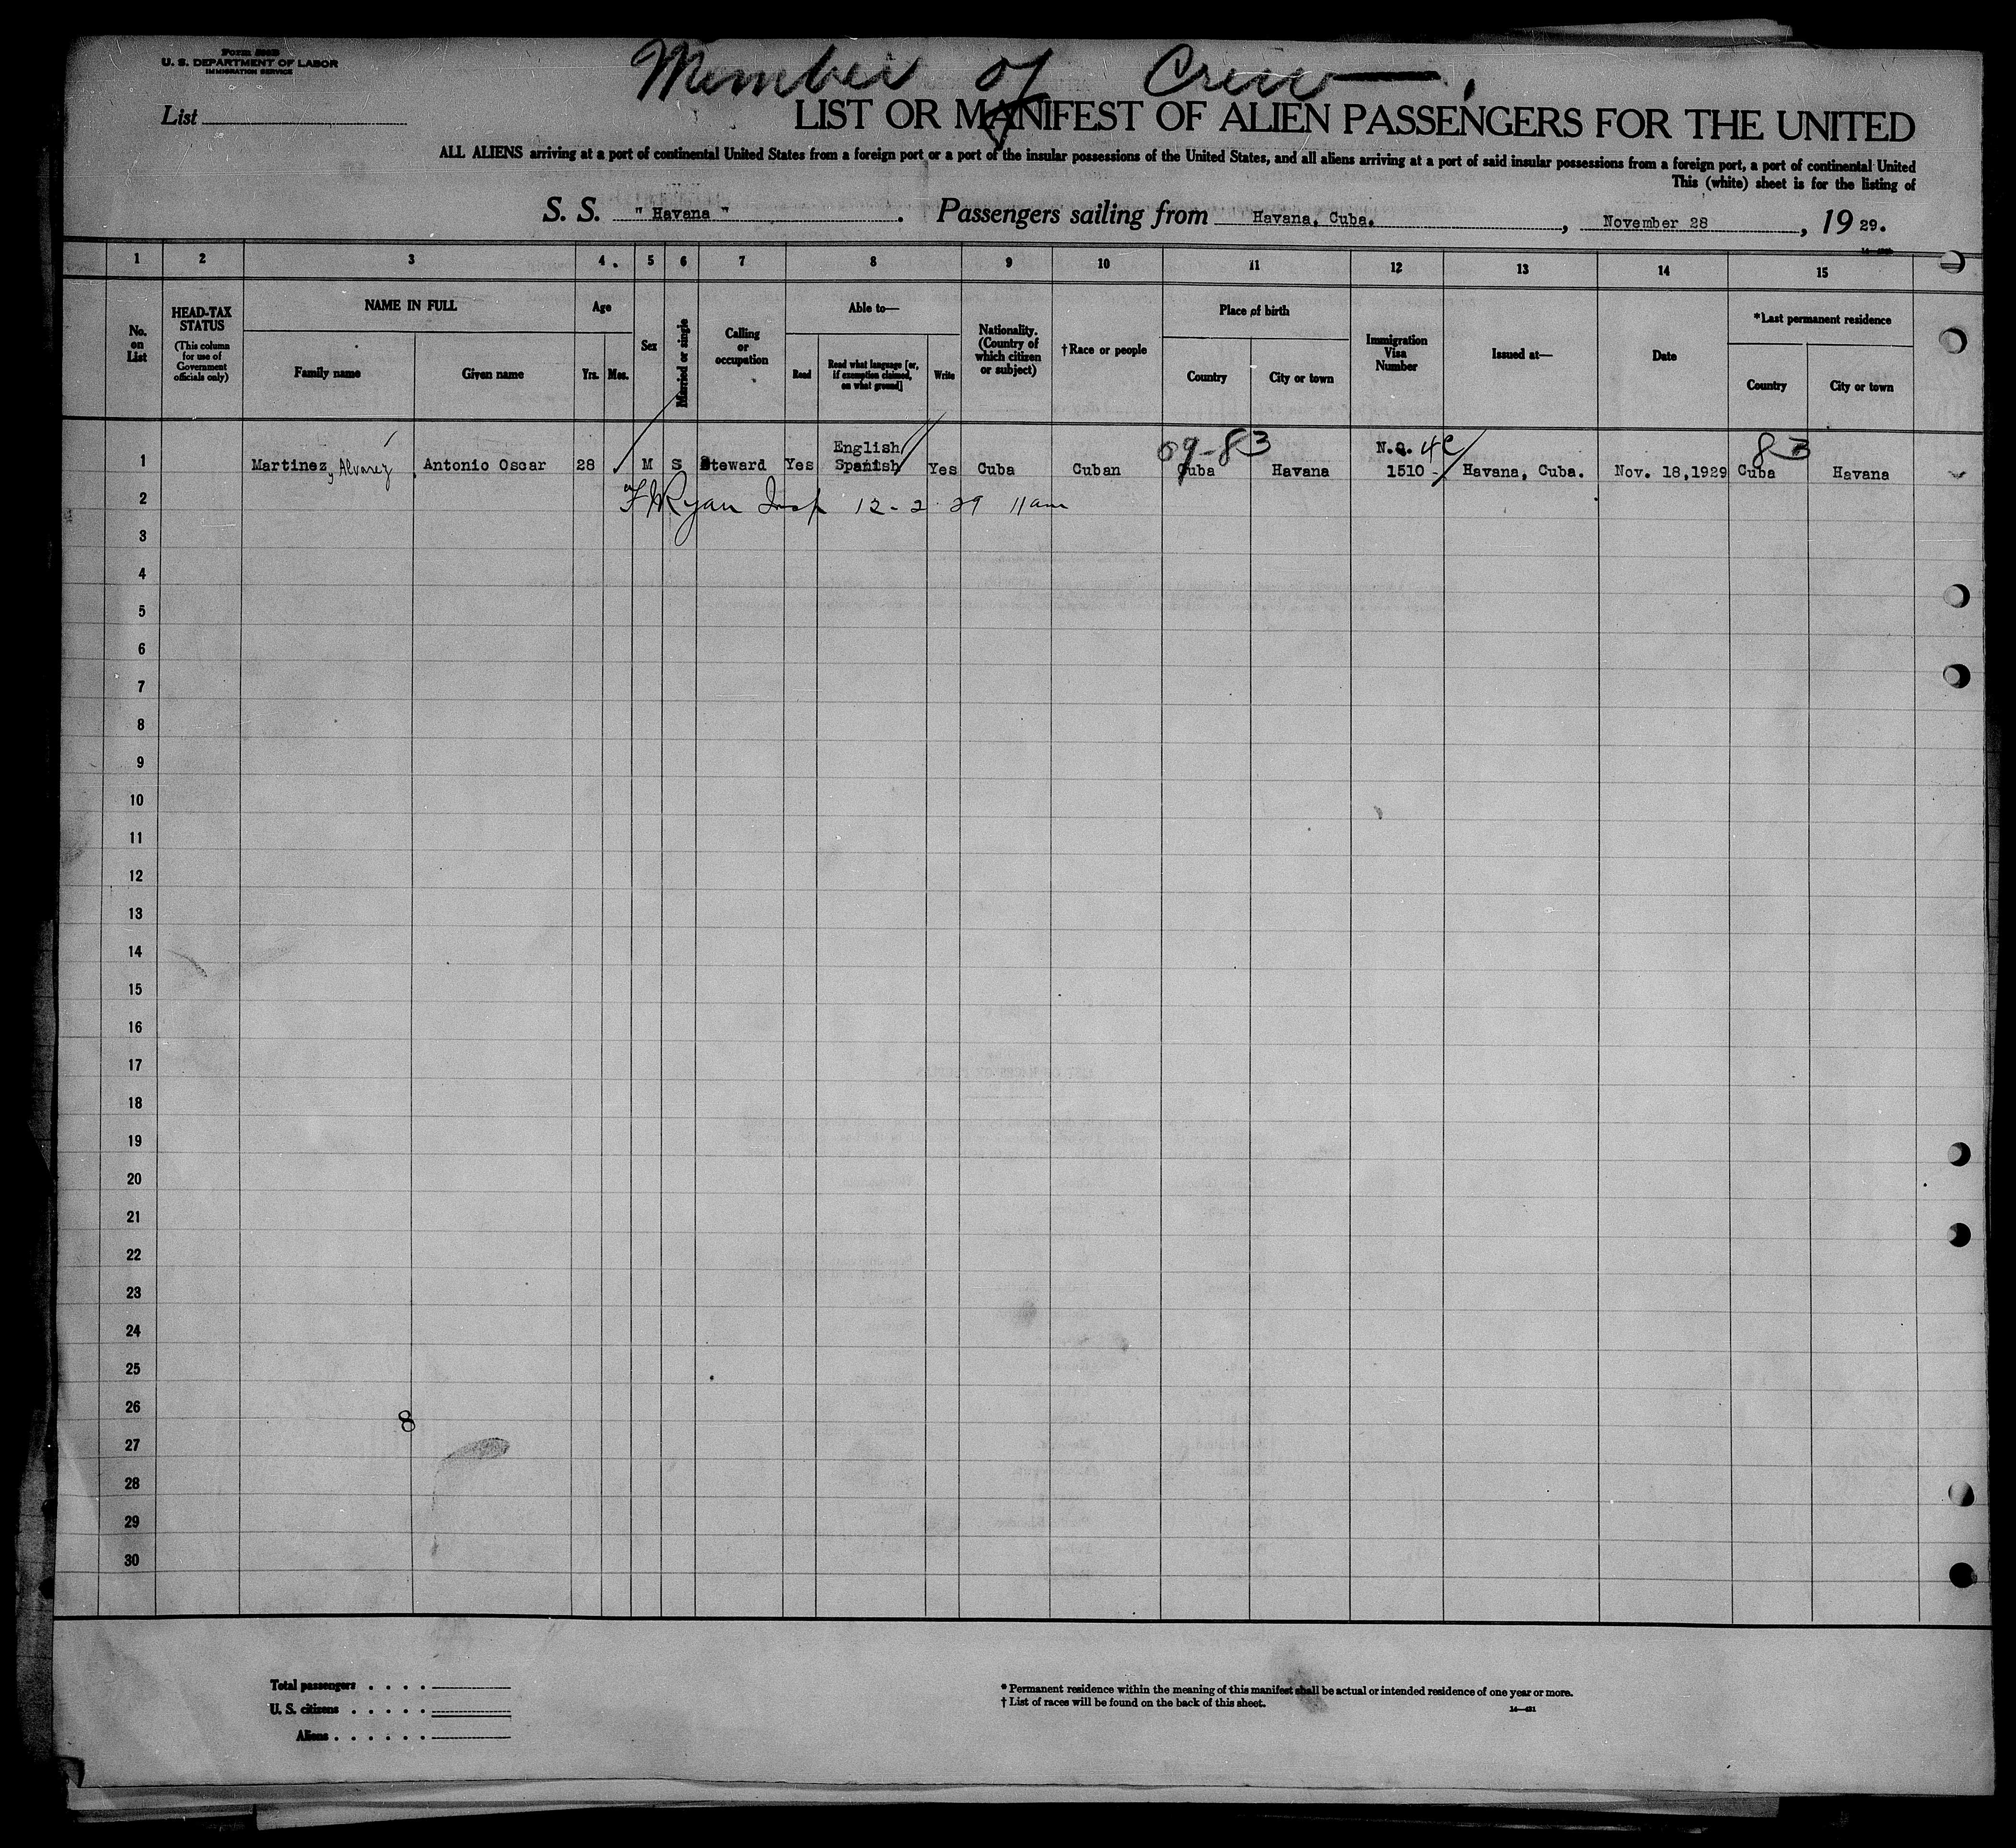 U. S. DEPARTMENT OF LABOR
IMMIGRATION SERVICE
Member of Crew
List
LIST OR MANIFEST OF ALIEN PASSENGERS FOR THE UNITED
ALL ALIENS arriving at a port of continental United States from a foreign port or a port of the insular possessions of the United States, and all aliens arriving at a port of said insular possessions from a foreign port, a port of continental United
This (white) sheet is for the listing of
S. S. " Havana ". Passengers sailing from Havana, Cuba., November 28, 1929.
1 2 3 4 5 6 7 8 9 10 11 12 13 14 15
No. on List
HEAD-TAX STATUS
(This column for use of Government officials only)
NAME IN FULL
Family name
Given name
Age
Yrs. Mos.
Sex
Married or single
Calling or occupation
Able to—
Read
Read what language [or, if exemption claimed, on what ground]
Write
Nationality. (Country of which citizen or subject)
†Race or people
Place of birth
Country
City or town
Immigration Visa Number
Issued at—
Date
*Last permanent residence
Country
City or town
English 09-83 N.Q. 4C 83
1 Martinez y Alvarez, Antonio Oscar 28 M S Steward Yes Spanish Yes Cuba Cuban Cuba Havana 1510 Havana, Cuba. Nov. 18,1929 Cuba Havana
2 Ryan Insp 12-2-29 11am
3
4
5
6
7
8
9
10
11
12
13
14
15
16
17
18
19
20
21
22
23
24
25
26
8
27
28
29
30
Total passengers . . . .
U. S. citizens . . . . .
Aliens . . . . . .
* Permanent residence within the meaning of this manifest shall be actual or intended residence of one year or more.
† List of races will be found on the back of this sheet.